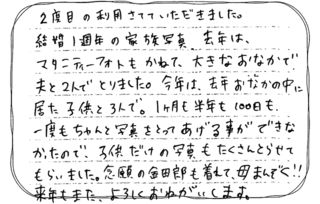 2度目の利用させていただきました。
結婚1週年の家族写真 去年は、
マタニティーフォトもかねて、大きなおなかで
夫と2人でとりました。今年は、去年おなかの中に
居た子供と3人で。1ヶ月も半年も100日も、
一度もちゃんと写真をとってあげる事ができな
かたので、子供だけの写真もたくさんとらせて
もらいました。念願の金田郎も着れて、母まんぞく!!
来年もまた、よろしくおねがいします。